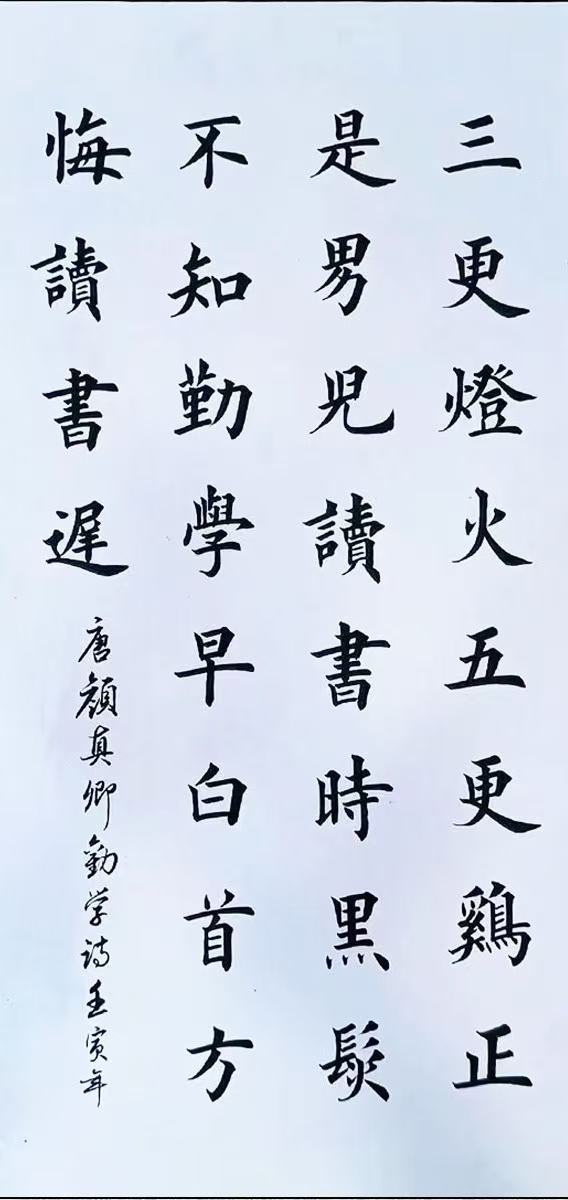 三更燈火五更鷄正
是男兒讀書時黑髮
不知勤學早白首方
悔讀書遲
唐顏真卿勸学詩壬寅年